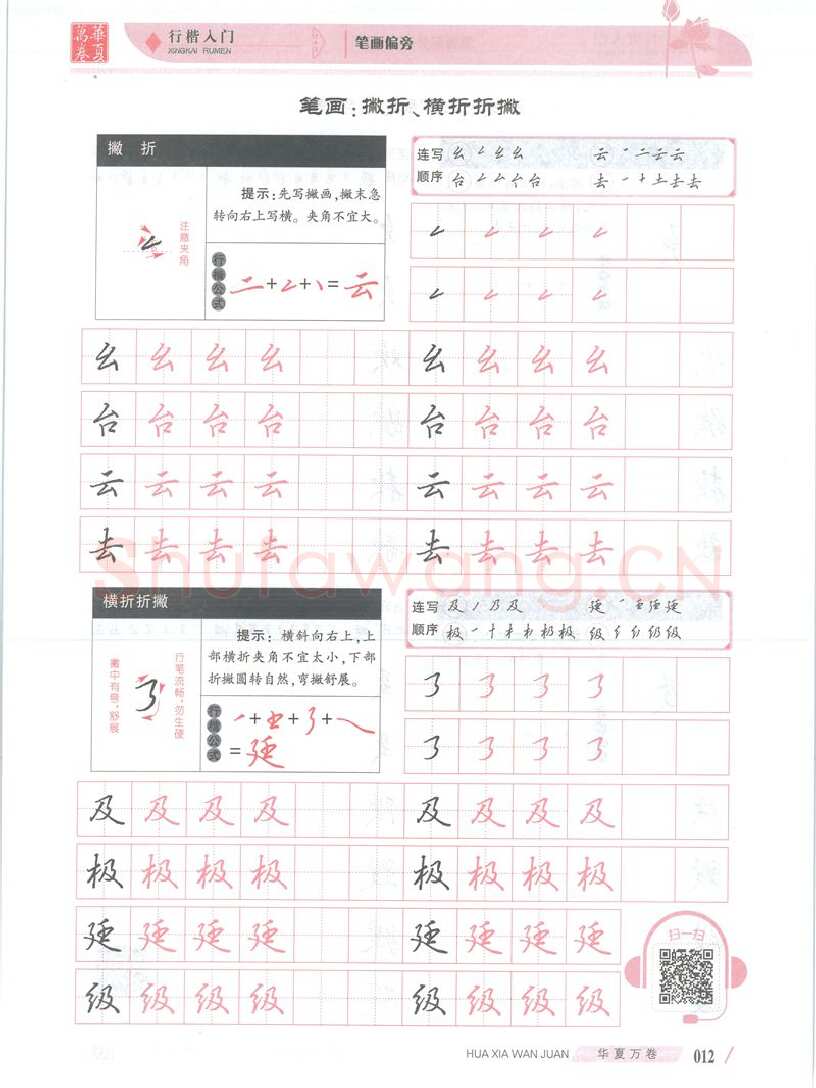 華夏萬卷
行楷入门
XINGKAI RUMEN
笔画偏旁
笔画：撇折、横折折撇
撇 折
注意夹角
提示：先写撇画，撇末急
转向右上写横。夹角不宜大。
行楷公式
二+𠃋+丶=云
连写
顺序
幺 幺
云 一 二 云 云
台 台
去 一 十 土 去 去
幺 幺 幺 幺 幺 幺 幺 幺
台 台 台 台 台 台 台 台
云 云 云 云 云 云 云 云
去 去 去 去 去 去 去 去
Shufawang.CN
横折折撇
行笔流畅，勿生硬
提示：横斜向右上，上
部横折夹角不宜太小，下部
折撇圆转自然，弯撇舒展。
行楷公式
连写
顺序
及 丿 乃 及
极 一 十 极
级 级
及 及 及 及 及 及 及 及
极 极 极 极 极 极 极 极
廷 廷 廷 廷 廷 廷 廷 廷
级 级 级 级 级 级 级 级
扫一扫
HUA XIA WAN JUAN
华夏万卷
012 /